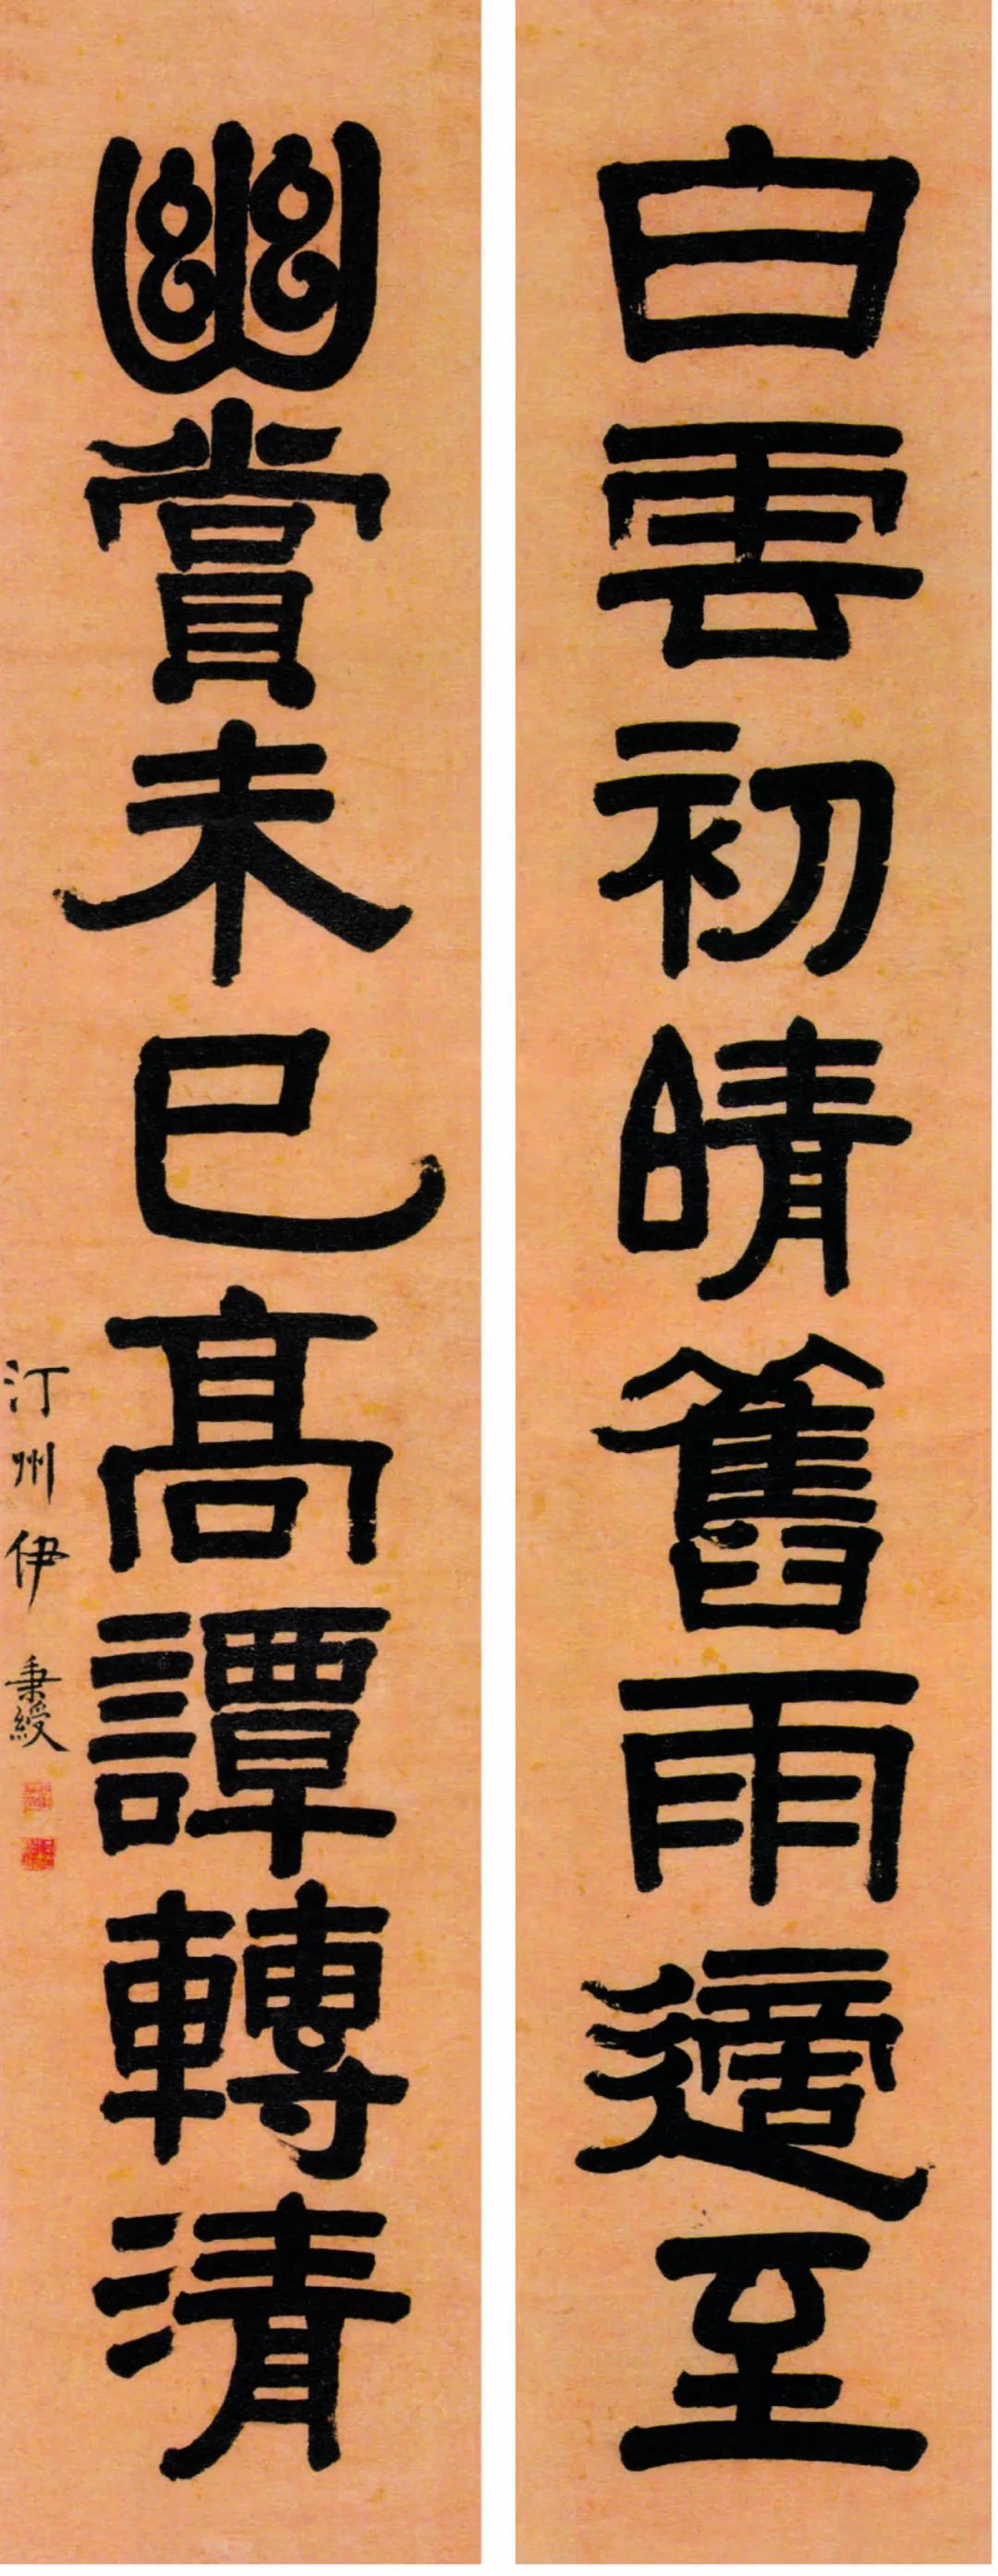 白雲初晴舊雨適至
幽賞未已高譚轉清
汀州伊秉綬